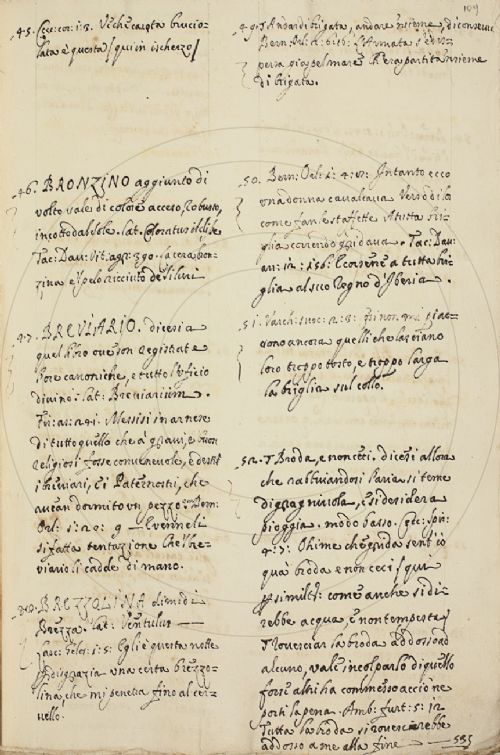 109
45. Cecc: cor: 1: 8. V'è che carta brucio-
lata è questa / qui in ischerzo /
46. BRONZINO aggiunto di
volto vale di colore acceso, robusto,
incotto dal sole. lat. Coloratus
Tac: Dau: Vit: agr: 390. la cera bron-
zina e 'l pelo ricciuto de' Siluri
47. BREVIARIO. dicesi a
quel libro ove son registrate
l'ore canoniche, e tutto l'ufizio
divino: lat: Breviarium.
Messisi in arnese
di tutto quello che a gravi, e buon
religiosi fosse convenevole, e destri
i breviari, e i Paternostri, che
avean dormito un pezzo. Bern:
Orl: 1: 20: 9
si fatta tentazione Che 'l bre-
viario li cadde di mano.
48. BREZZOLINA dimin: di
Brezza. Lat: Ventulus
1: 5: Egli è questa notte
disgrazia una certa brezzo-
lina, che mi penetra fino al cer-
vello.
49. T Andar di brigata, andare insieme, di conserva
Bern: Orl: L'Armata
pel mare Ch'era partita insieme
di brigata.
50. Bern: Orl: 2: 4: Intanto ecco
una donna cavalcava Verso di lo
come fan le staffette A tutta bri-
glia correndo gridava. Tac: Dau:
an: 12: 156: E corsene a tutta bri-
glia al suo Regno d'Iberia.
51. Varch: suoc: 2: 8:
ancora quelli che lasciano
loro troppo tosto, e troppo larga
la briglia sul collo.
52. T Broda, e non ceci. dicesi allora
che rabbuiandosi l'aria si teme
di gragnuola, e si desidera
pioggia. modo basso. Cecc:
4: 7: Ohime che grida sent'io
qua broda e non ceci / qui
simil: come anche si di-
rebbe acqua, e non tempesta /
T Rovesciar la broda addosso ad
alcuno, vale incolparlo di quello
forse altri ha commesso acciò ne
porti la pena. Amb: furt: 5: 12
Tutta la broda si rovescerebbe
addosso a me alla fine
585